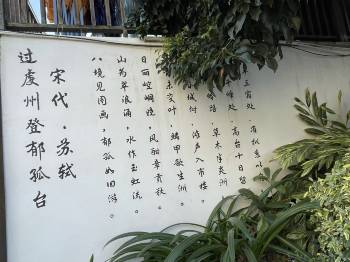 过虔州登郁孤台
宋代·苏轼
八境见图画，郁孤如旧游。
山为翠浪涌，水作玉虹流。
日丽崆峒晓，风酣章贡秋。
未变叶，鳞甲欲生洲。
城，滩声入市楼。
路，草木半炎洲。
峰处，高台十日留
三宿处，准拟系